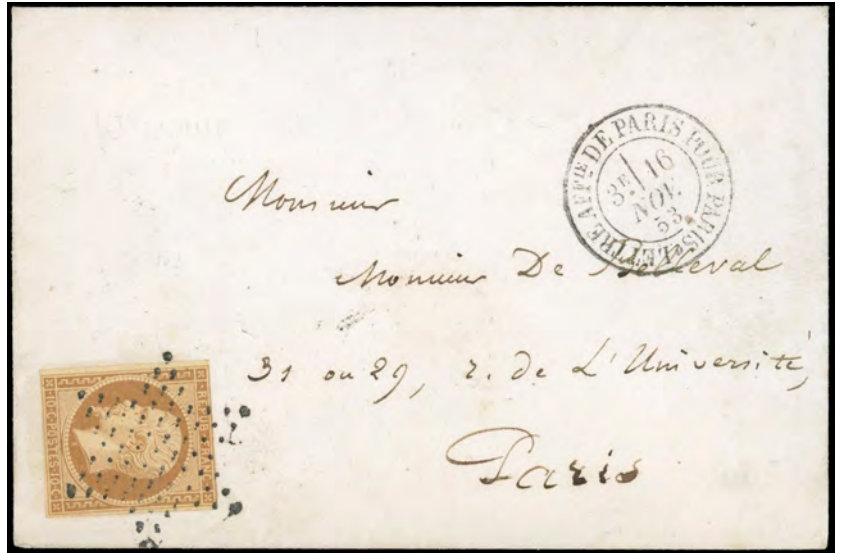 LETTRE AFF.IE DE PARIS POUR PARIS
3E 16
NOV.
53
Monsieur
Monsieur De Belleval
31 ou 29, r. de L'Université,
Paris
REPUB. FRANC.
10·C·POSTES·10·C